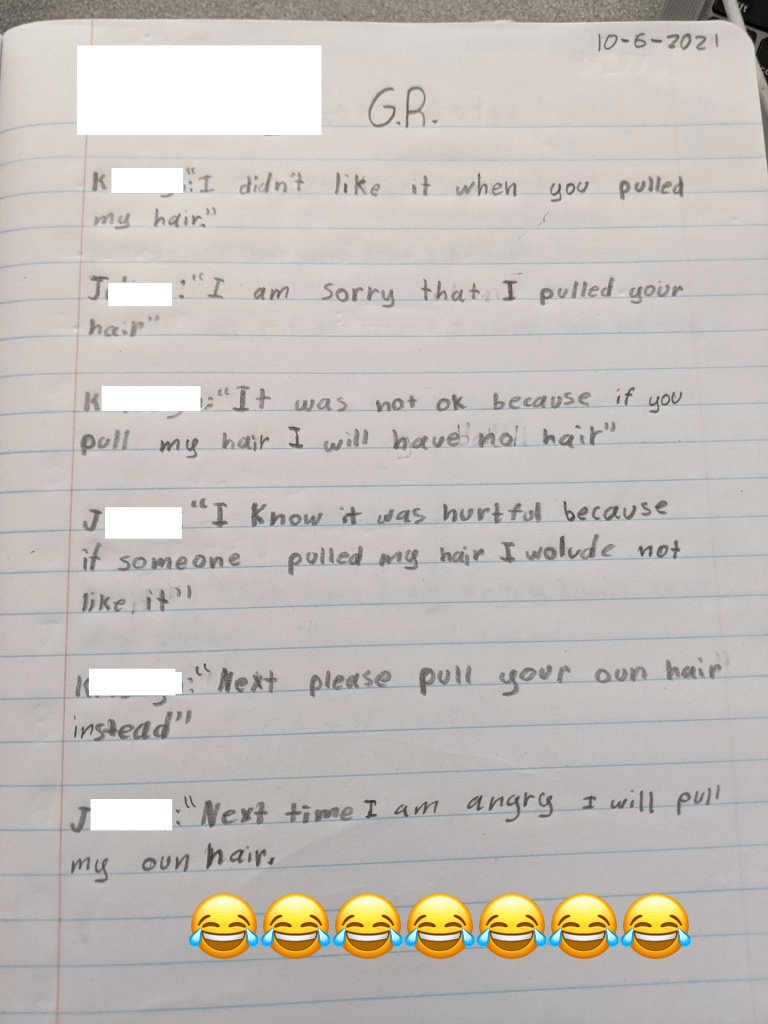 10-6-2021
G.R.
K :"I didn't like it when you pulled
my hair."
J :"I am sorry that I pulled your
hair"
K :"It was not ok because if you
pull my hair I will have no hair"
J "I Know it was hurtful because
if someone pulled my hair I wolude not
like it"
K :"Next please pull your oun hair
instead"
J :"Next time I am angry I will pull
my oun hair.
😂😂😂😂😂😂😂